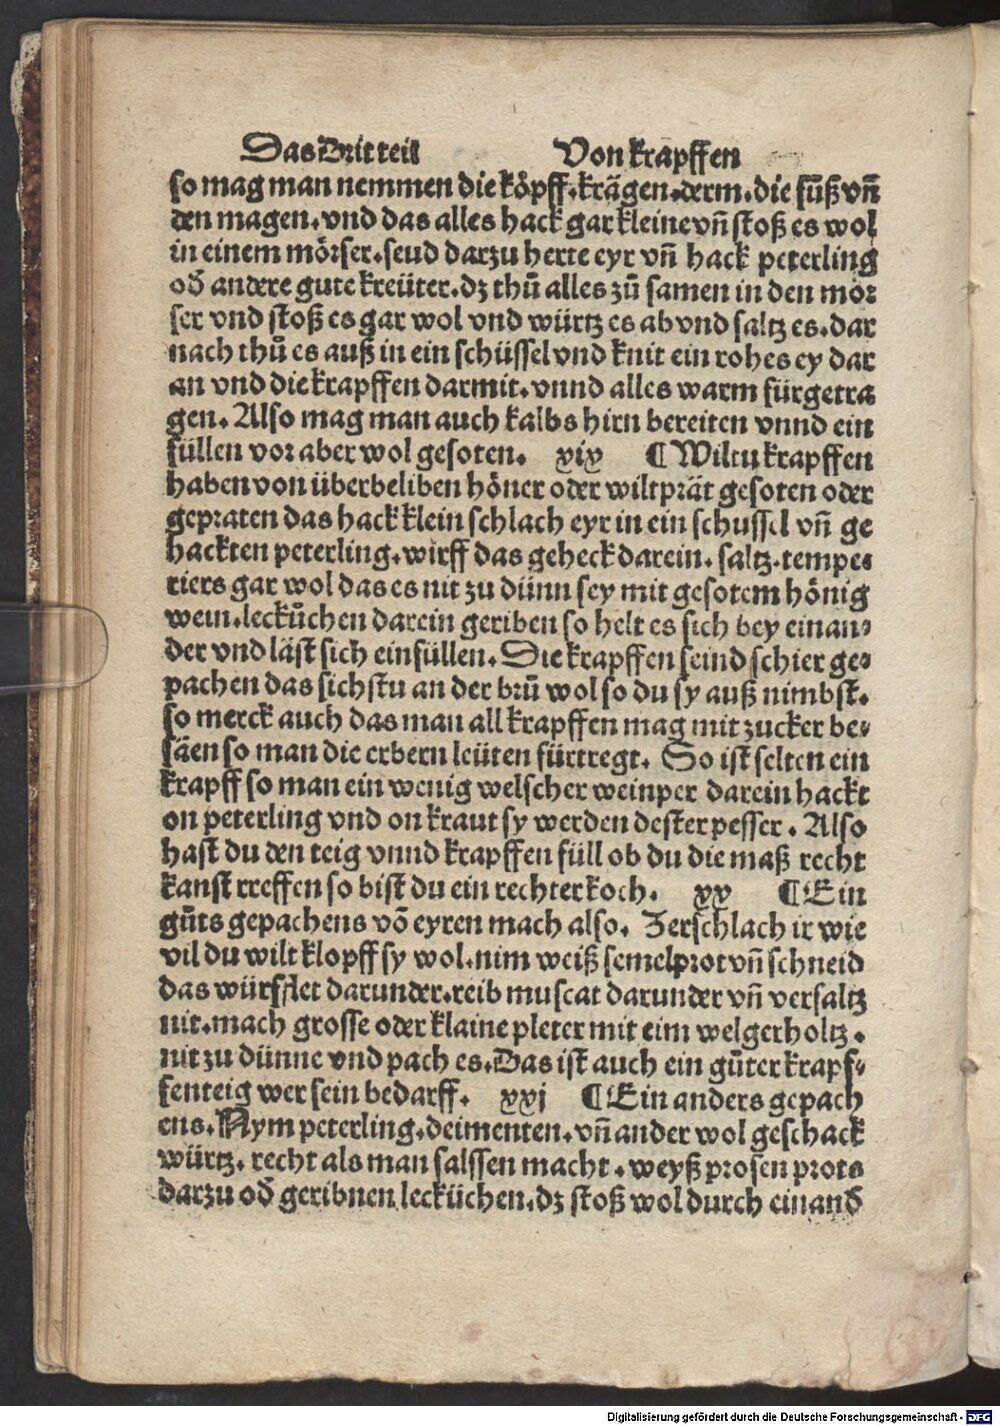 Das Drit teil Von krapffen
so mag man nemmen die köpff. krägen. derm. die fůß vñ
den magen. vnd das alles hack gar kleine vñ stoß es wol
in einem mörser. seud darzu herte eyr vñ hack peterling
oď andere gute kreüter. dz thů alles zů samen in den mör
ser vnd stoß es gar wol vnd würtz es ab vnd saltz es. dar
nach thů es auß in ein schüssel vnd knit ein rohes ey dar
an vnd die krapffen darmit. vnnd alles warm fürgetra
gen. Also mag man auch kalbs hirn bereiten vnnd ein
füllen vor aber wol gesoten. xix ¶ Wiltu krapffen
haben von überbeliben höner oder wiltprät gesoten oder
gepraten das hack klein schlach eyr in ein schussel vñ ge
hackten peterling. wirff das geheck darein. saltz. tempe⸗
riers gar wol das es nit zu dünn sey mit gesotem hönig
wein. leckůchen darein geriben so helt es sich bey einan⸗
der vnd läst sich einfüllen. Die krapffen seind schier ge⸗
pachen das sichstu an der brů wol so du sy auß nimbst.
so merck auch das man all krapffen mag mit zucker be⸗
säen so man die erbern leüten fürtregt. So ist selten ein
krapff so man ein wenig welscher weinper darein hackt
on peterling vnd on kraut sy werden dester pesser. Also
hast du den teig vnnd krapffen füll ob du die maß recht
kanst treffen so bist du ein rechter koch. xx ¶ Ein
gůts gepachens võ eyren mach also. Zerschlach ir wie
vil du wilt klopff sy wol. nim weiß semelprot vñ schneid
das würfflet darunder. reib muscat darunder vñ versaltz
nit. mach grosse oder klaine pleter mit eim welgerholtz.
nit zu dünne vnd pach es. Das ist auch ein gůter krapf⸗
fenteig wer sein bedarff. xxj ¶ Ein anders gepach
ens. Nym peterling. deimenten. vñ ander wol geschack
würtz. recht als man salssen macht. weyß prosen prots
darzu oď geribnen lecküchen. dz stoß wol durch einanď
Digitalisierung gefördert durch die Deutsche Forschungsgemeinschaft - DFG